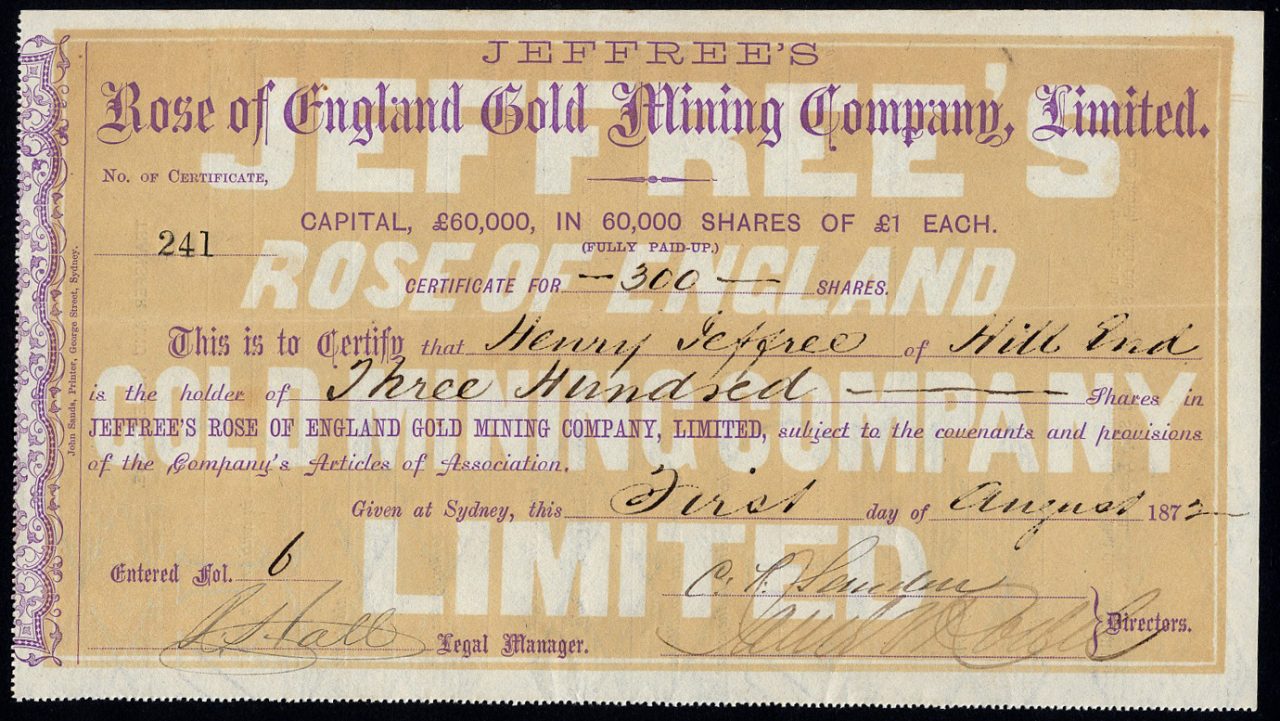 JEFFREE'S
Rose of England Gold Mining Company, Limited.
No. of Certificate,
241
CAPITAL, £60,000, IN 60,000 SHARES OF £1 EACH.
(FULLY PAID-UP.)
CERTIFICATE FOR — 300 — SHARES.
This is to Certify that Henry Jeffree of Hill End
is the holder of Three Hundred — Shares in
JEFFREE'S ROSE OF ENGLAND GOLD MINING COMPANY, LIMITED, subject to the covenants and provisions
of the Company's Articles of Association.
Given at Sydney, this First day of August 1872
Entered Fol. 6
Hall Legal Manager.
Directors.
John Sands, Printer, George Street, Sydney.
JEFFREE'S
ROSE OF ENGLAND
GOLD MINING COMPANY
LIMITED